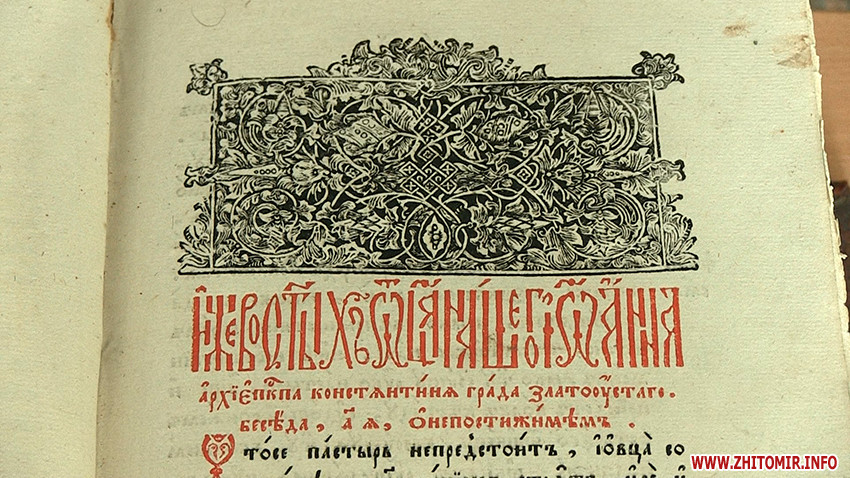 И҆́же во ст҃ы́хъ ѻ҆ц҃а̀ на́шего і҆ѡа́нна
архїепⷭ҇кпа констѧнти́нѧ гра́да златоꙋ́стаго.
бесѣ́да, а҃ѧ, ѡ҆непостижи́мѣмъ .
Что́се па́стырь непредстои́тъ, і҆ѻвца̀ со
WWW.ZHITOMIR.INFO